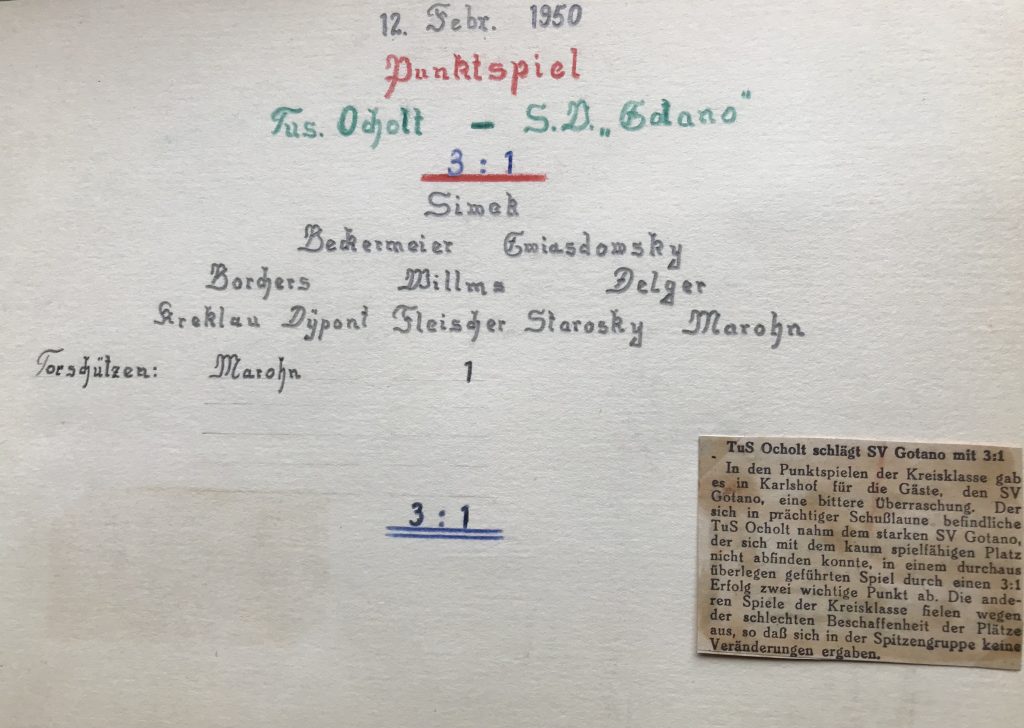 12. Febr. 1950
Punktspiel
Tus. Ocholt - S.V. „Gotano"
3 : 1
Simek
Beckermeier Gwiasdowsky
Borchers Willms Delger
Kreklau Dÿpont Fleischer Starosky Marohn
Torschützen: Marohn 1
3 : 1
TuS Ocholt schlägt SV Gotano mit 3:1
In den Punktspielen der Kreisklasse gab
es in Karlshof für die Gäste, den SV
Gotano, eine bittere Überraschung. Der
sich in prächtiger Schußlaune befindliche
TuS Ocholt nahm dem starken SV Gotano,
der sich mit dem kaum spielfähigen Platz
nicht abfinden konnte, in einem durchaus
überlegen geführten Spiel durch einen 3:1
Erfolg zwei wichtige Punkt ab. Die ande-
ren Spiele der Kreisklasse fielen wegen
der schlechten Beschaffenheit der Plätze
aus, so daß sich in der Spitzengruppe keine
Veränderungen ergaben.